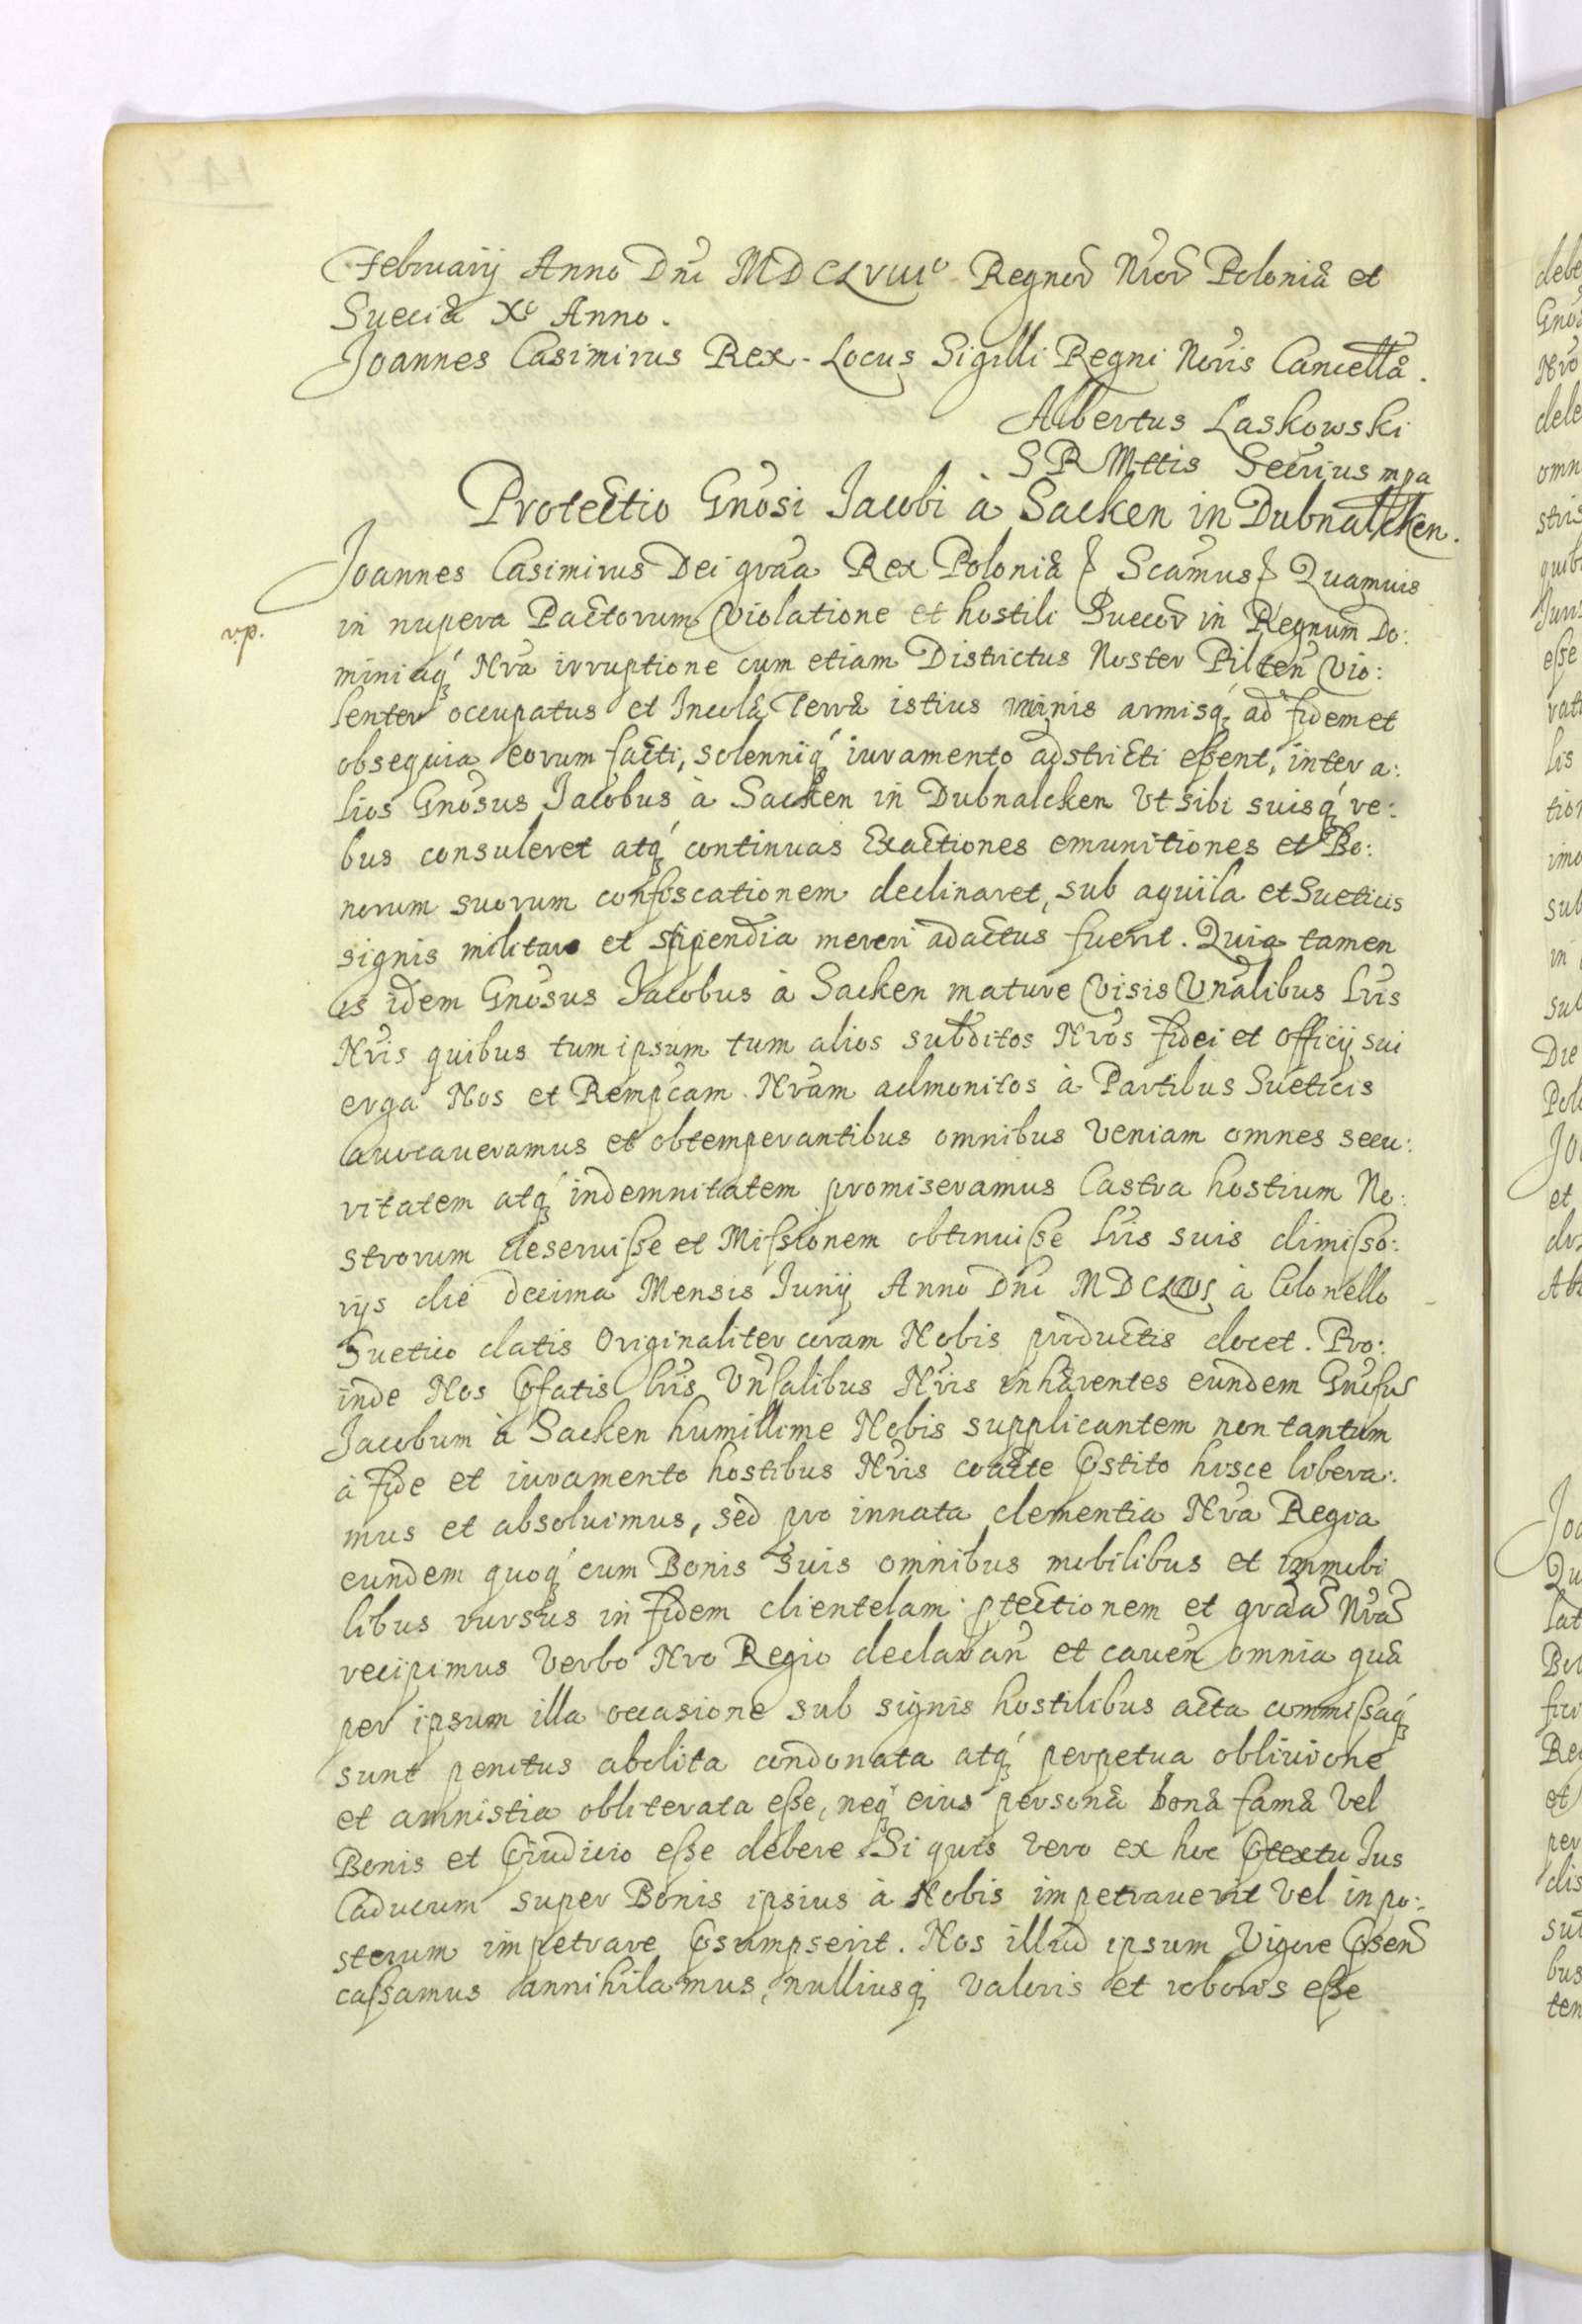 Februarij Anno Dni MDCLVIII° Regnor Nror Poloniæ et
Sueciæ X° Anno.
Joannes Casimirus Rex - Locus Sigilli Regni Noris Cancellæ.
Albertus Laskowski
S R Mttis Secrius mpa
Protectio Gnosi Jacobi à Sacken in Dubnalcken.
Joannes Casimirus Dei graa Rex Poloniæ & Scamus & Quamuis
v.p.
in nupera Pactorum Violatione et hostili Suecor in Regnum Do:
miniaq́ Nra irruptione cum etiam Districtus Noster Pilten Vio:
lenter occupatus et Incolæ Terræ istius minis armisq́ ad fidem et
obsequia eorum facti, solenniq́ iuramento adstricti essent, inter a:
lios Gnosus Jacobus à Sacken in Dubnalcken Vt sibi suisq́ re:
bus consuleret atq́ continuas Exactiones emunitiones et Bo:
norum suorum confiscationem declinaret, sub aquila et Sueticis
signis militare et stipendia mereri adactus fuerit. Quia tamen
is idem Gnosus Jacobus à Sacken mature Visis Vnalibus Lris
Nris quibus tum ipsum tum alios subditos Nros fidei et Officij sui
erga Nos et Rempcam Nram admonitos à Partibus Sueticis
auocaueramus et obtemperantibus omnibus Veniam omnes secu:
ritatem atq́ indemnitatem promiseramus Castra hostium No:
strorum deseruisse et Missionem obtinuisse Lris suis dimisso:
rijs die decima Mensis Junij Anno Dni à Colonello
Suetico datis Originaliter coram Nobis productis docet. Pro:
inde Nos Pfatis Lris Vnsalibus Nris inhærentes eundem Gnosus
Jacobum à Sacken humillime Nobis supplicantem non tantum
à fide et iuramento hostibus Nris coacte Pstito hisce libera:
mus et absoluimus, sed pro innata clementia Nra Regia
eundem quoq́ cum Bonis suis omnibus mobilibus et immobi
libus rursus in fidem clientelam ptectionem et graa Nra
recipimus Verbo Nro Regio declaran et cauen omnia quæ
per ipsum illa occasione sub signis hostilibus acta commissaq́
sunt penitus abolita condonata atq́ perpetua obliuione
et amnistia obliterata esse, neq́ eius personæ bonæ famæ Vel
Bonis et Piudicio esse debere. Si quis vero ex hoc Ptextu Jus
Caducum super Bonis ipsius à Nobis impetrauerit Vel in po:
sterum impetrare Psumpserit. Nos illud ipsum Vigore Psen
cassamus annihilamus, nulliusq́ Valoris et roboris esse